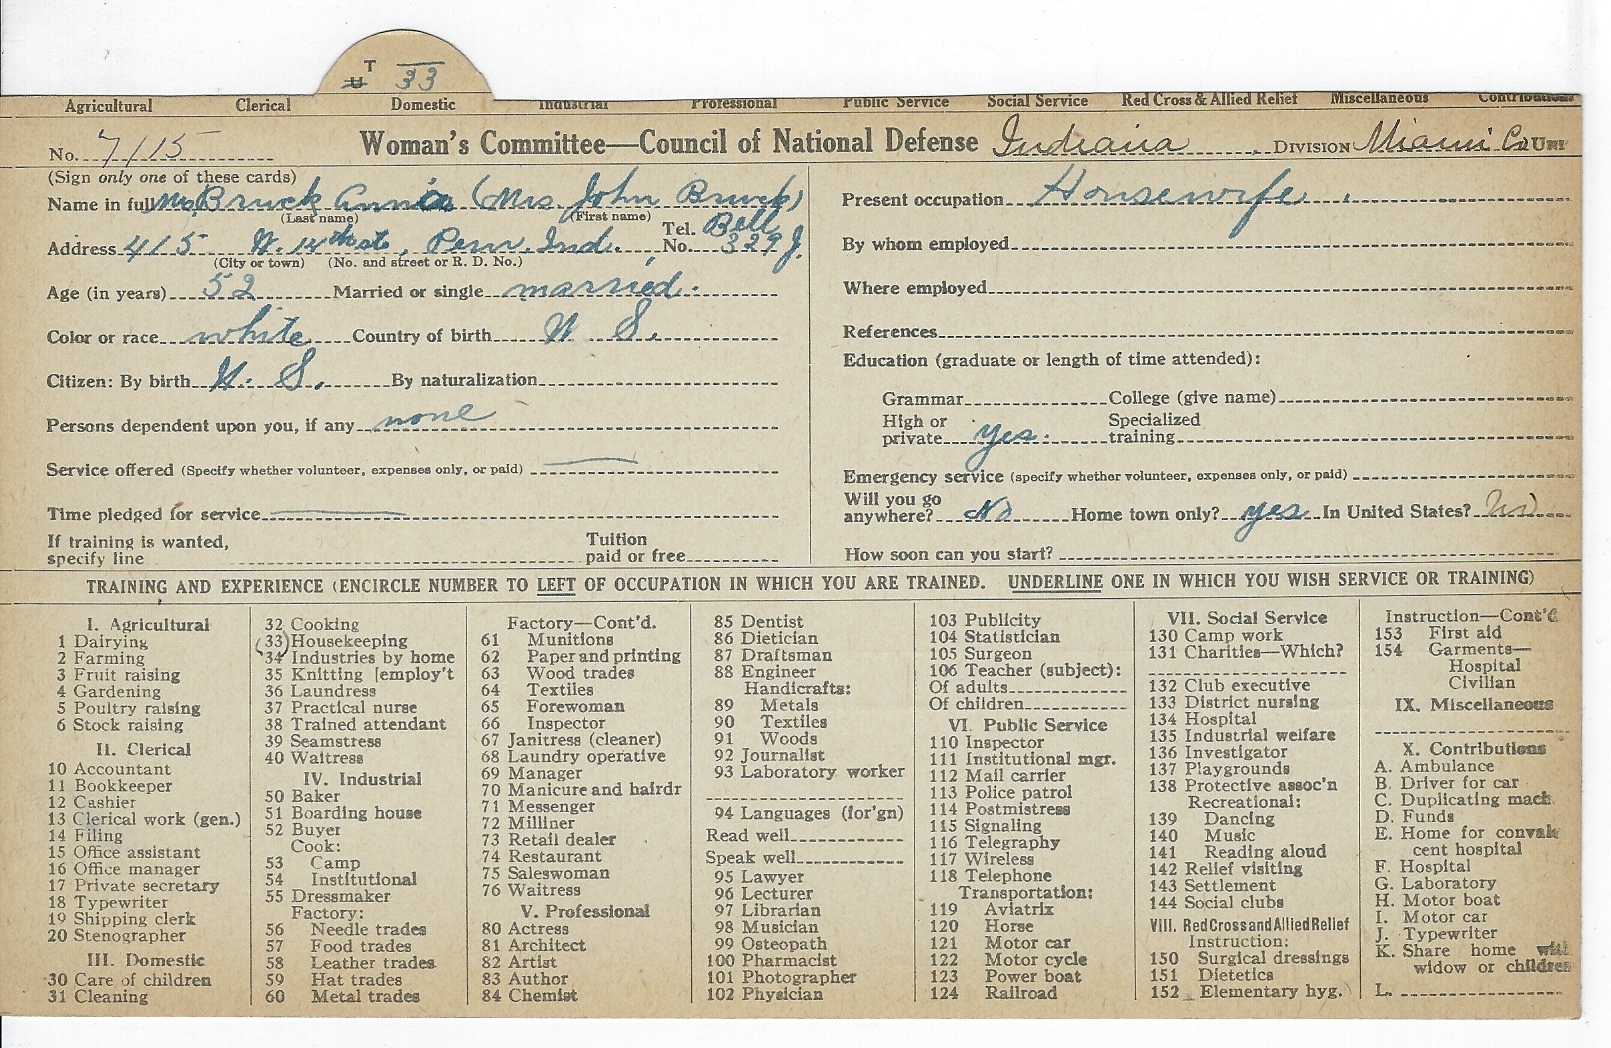 T 33
U
Agricultural Clerical Domestic Industrial Professional Public Service Social Service Red Cross & Allied Relief Miscellaneous Contributions
No. 7115 Woman's Committee—Council of National Defense Indiana DIVISION Miami Co UNI
(Sign only one of these cards)
Name in full Mrs Bruck Annie (Mrs John Bruck)
(Last name) (First name)
Address 415 W. 14th st., Peru, Ind. Tel. No. Bell 329 J.
(City or town) (No. and street or R. D. No.)
Age (in years) 52 Married or single married.
Color or race white Country of birth U. S.
Citizen: By birth U. S. By naturalization
Persons dependent upon you, if any none
Service offered (Specify whether volunteer, expenses only, or paid) —
Time pledged for service —
If training is wanted,
specify line Tuition paid or free
Present occupation Housewife
By whom employed
Where employed
References
Education (graduate or length of time attended):
Grammar College (give name)
High or private yes. Specialized training
Emergency service (specify whether volunteer, expenses only, or paid)
Will you go anywhere? No Home town only? yes In United States?
How soon can you start?
TRAINING AND EXPERIENCE (ENCIRCLE NUMBER TO LEFT OF OCCUPATION IN WHICH YOU ARE TRAINED. UNDERLINE ONE IN WHICH YOU WISH SERVICE OR TRAINING)
I. Agricultural
1 Dairying
2 Farming
3 Fruit raising
4 Gardening
5 Poultry raising
6 Stock raising
II. Clerical
10 Accountant
11 Bookkeeper
12 Cashier
13 Clerical work (gen.)
14 Filing
15 Office assistant
16 Office manager
17 Private secretary
18 Typewriter
19 Shipping clerk
20 Stenographer
III. Domestic
30 Care of children
31 Cleaning
32 Cooking
(33) Housekeeping
34 Industries by home
35 Knitting [employ't
36 Laundress
37 Practical nurse
38 Trained attendant
39 Seamstress
40 Waitress
IV. Industrial
50 Baker
51 Boarding house
52 Buyer
Cook:
53 Camp
54 Institutional
55 Dressmaker
Factory:
56 Needle trades
57 Food trades
58 Leather trades
59 Hat trades
60 Metal trades
Factory—Cont'd.
61 Munitions
62 Paper and printing
63 Wood trades
64 Textiles
65 Forewoman
66 Inspector
67 Janitress (cleaner)
68 Laundry operative
69 Manager
70 Manicure and hairdr
71 Messenger
72 Milliner
73 Retail dealer
74 Restaurant
75 Saleswoman
76 Waitress
V. Professional
80 Actress
81 Architect
82 Artist
83 Author
84 Chemist
85 Dentist
86 Dietician
87 Draftsman
88 Engineer
Handicrafts:
89 Metals
90 Textiles
91 Woods
92 Journalist
93 Laboratory worker
94 Languages (for'gn)
Read well
Speak well
95 Lawyer
96 Lecturer
97 Librarian
98 Musician
99 Osteopath
100 Pharmacist
101 Photographer
102 Physician
103 Publicity
104 Statistician
105 Surgeon
106 Teacher (subject):
Of adults
Of children
VI. Public Service
110 Inspector
111 Institutional mgr.
112 Mail carrier
113 Police patrol
114 Postmistress
115 Signaling
116 Telegraphy
117 Wireless
118 Telephone
Transportation:
119 Aviatrix
120 Horse
121 Motor car
122 Motor cycle
123 Power boat
124 Railroad
VII. Social Service
130 Camp work
131 Charities—Which?
132 Club executive
133 District nursing
134 Hospital
135 Industrial welfare
136 Investigator
137 Playgrounds
138 Protective assoc'n
Recreational:
139 Dancing
140 Music
141 Reading aloud
142 Relief visiting
143 Settlement
144 Social clubs
VIII. Red Cross and Allied Relief
Instruction:
150 Surgical dressings
151 Dietetics
152 Elementary hyg.
Instruction—Cont'd
153 First aid
154 Garments—
Hospital
Civilian
IX. Miscellaneous
X. Contributions
A. Ambulance
B. Driver for car
C. Duplicating mach.
D. Funds
E. Home for convales
cent hospital
F. Hospital
G. Laboratory
H. Motor boat
I. Motor car
J. Typewriter
K. Share home with
widow or children
L.